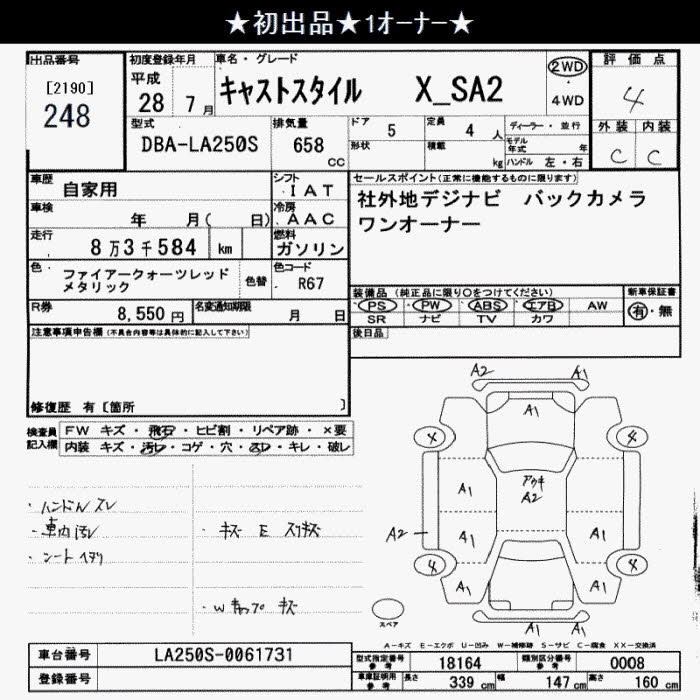 ★初出品★1オーナー★
出品番号
[2190]
248
初度登録年月
平成
28 年 7 月
車名・グレード
キャストスタイル X_SA2
2WD
・
4WD
評価点
4
外装 内装
C C
型式
DBA-LA250S
排気量
658
CC
ドア 5
定員 4 人
形状
積載 kg
ディーラー・並行
モデル年式 年
ハンドル 左・右
車歴
自家用
シフト
IAT
車検
年 月( 日)
冷房
AAC
走行
8万3千584 km
燃料
ガソリン
色
ファイアークォーツレッド
メタリック
色替
色コード
R67
R券
8,550 円
名変通知期限
月 日
セールスポイント(正常に機能するものに限ります)
社外地デジナビ バックカメラ
ワンオーナー
装備品 (純正品に限り○をつけてください)
PS ・ PW ・ ABS ・ エアB ・ AW
SR ナビ TV カワ
新車保証書
有・無
後日品
注意事項申告欄(不具合内容等は具体的に記入して下さい)
修復歴 有 [箇所 ]
検査員
記入欄
FW キズ・飛石・ヒビ割・リペア跡・×要
内装 キズ・汚レ・コゲ・穴・スレ・キレ・破レ
・ハンドルスレ
・車内汚レ
・シートヘタリ
・キズ E スリキズ
・Wキャップ キズ
A2 A1
A1
4 4
アウキ
A2
A1 A1
A2 A1 A1
4 4
A1 A1
A1 A1
スペア
A－キズ E－エクボ U－凹み W－補修跡 S－サビ C－腐食 XX－交換済
車台番号
LA250S-0061731
登録番号
型式指定番号
参考
18164
類別区分番号
参考
0008
車庫証明用
参考
長さ 339 cm
幅 147 cm
高さ 160 cm